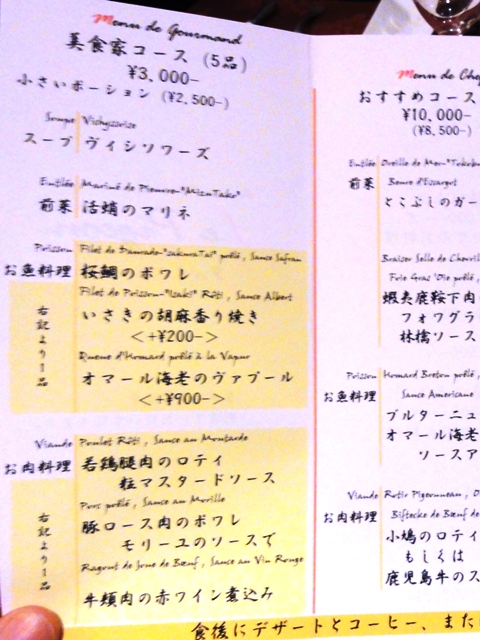 Menu de Gourmand
美食家コース (5品)
¥3,000-
小さいポーション (¥2,500-)
Soupe Vichyssoise
スープ ヴィシソワーズ
Entlée Mariné de Pieuvre-"MizuTako"
前菜 活蛸のマリネ
Poisson Filet de Daurade-"sakuraTai" poêlé, Sauce Safran
お魚料理 桜鯛のポワレ
Filet de Poisson-"Isaki" Rôti, Sauce Albert
右記より1品
いさきの胡麻香り焼き
<+¥200->
Queue d'Homard poêlé à la Vapur
オマール海老のヴァプール
<+¥900->
Viande Poulet Rôti, Sauce au Moutarde
お肉料理 若鶏腿肉のロティ
粒マスタードソース
Porc poêlé, Sauce au Morille
右記より1品
豚ロース肉のポワレ
モリーユのソースで
Ragout de Joue de Bœuf, Sauce au Vin Rouge
牛頬肉の赤ワイン煮込み
食後にデザートとコーヒー、また
Menu de Chef
おすすめコース
¥10,000-
(¥8,500-)
Entlée Oreille de Mer-"Tokob
前菜 Beure d'Escargot
とこぶしのガー
Braiser Selle de Chevril
Foie Gras 'Oie poêlé,
蝦夷鹿鞍下肉
フォワグラ
林檎ソース
Poisson Homard Breton poêlé,
お魚料理 Sauce Americane
ブルターニュ
オマール海老
ソースア
Viande Rotir Pigeonneau,
お肉料理 Biftecke de Bœuf de
小鳩のロティ
もしくは
鹿児島牛のス